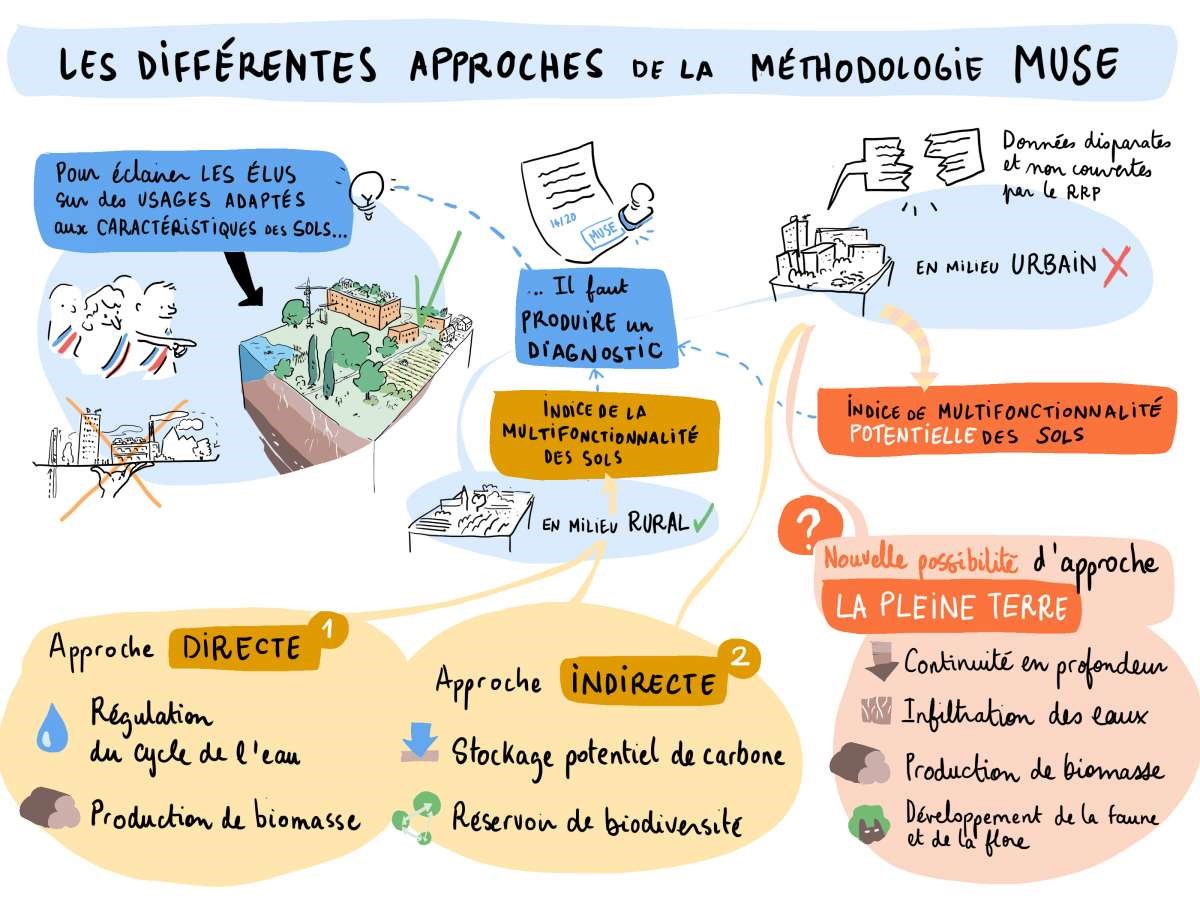 LES DIFFÉRENTES APPROCHES DE LA MÉTHODOLOGIE MUSE
Pour éclairer LES ÉLUS
sur des USAGES ADAPTÉS
aux CARACTÉRISTIQUES des SOLS...
14/20
MUSE
... Il faut
PRODUIRE un
DIAGNOSTIC
Données disparates
et non couvertes
par le RRP
EN MILIEU URBAIN
INDICE DE LA
MULTIFONCTIONNALITÉ
DES SOLS
EN MILIEU RURAL
INDICE DE MULTIFONCTIONNALITÉ
POTENTIELLE DES SOLS
Approche DIRECTE
1
Régulation
du cycle de l'eau
Production de biomasse
Approche INDIRECTE
2
Stockage potentiel de carbone
Réservoir de biodiversité
?
Nouvelle possibilité d'approche
LA PLEINE TERRE
Continuité en profondeur
Infiltration des eaux
Production de biomasse
Développement de la faune
et de la flore